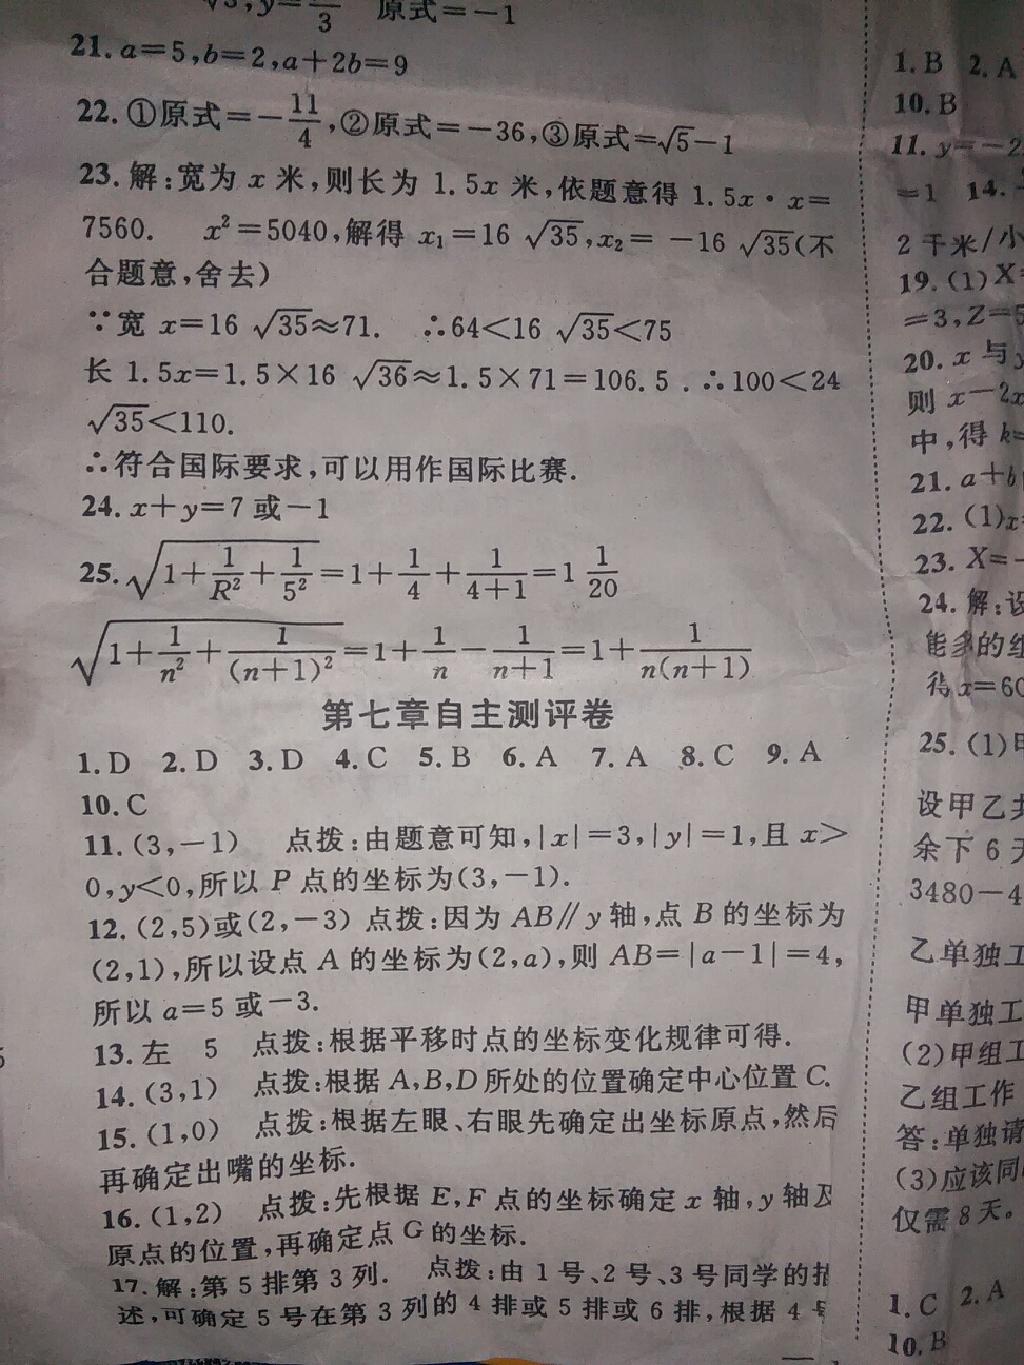 原式=-1
21. a=5,b=2,a+2b=9
22. ①原式=-11/4,②原式=-36,③原式=√5-1
23. 解:宽为 x 米,则长为 1.5x 米,依题意得 1.5x·x=
7560. x²=5040,解得 x₁=16 √35,x₂= -16 √35(不
合题意,舍去)
∵宽 x=16 √35≈71. ∴64<16 √35<75
长 1.5x=1.5×16 √36≈1.5×71=106.5. ∴100<24
√35<110.
∴符合国际要求,可以用作国际比赛.
24. x+y=7 或-1
25. √(1+1/R²+1/5²)=1+1/4+1/(4+1)=1 1/20
√(1+1/n²+1/(n+1)²)=1+1/n-1/(n+1)=1+1/(n(n+1))
第七章自主测评卷
1. D 2. D 3. D 4. C 5. B 6. A 7. A 8. C 9. A
10. C
11. (3,-1) 点拨:由题意可知,|x|=3,|y|=1,且 x>
0,y<0,所以 P 点的坐标为(3,-1).
12. (2,5)或(2,-3) 点拨:因为 AB∥y 轴,点 B 的坐标为
(2,1),所以设点 A 的坐标为(2,a),则 AB=|a-1|=4,
所以 a=5 或-3.
13. 左 5 点拨:根据平移时点的坐标变化规律可得.
14. (3,1) 点拨:根据 A,B,D 所处的位置确定中心位置 C.
15. (1,0) 点拨:根据左眼、右眼先确定出坐标原点,然后
再确定出嘴的坐标.
16. (1,2) 点拨:先根据 E,F 点的坐标确定 x 轴,y 轴及
原点的位置,再确定点 G 的坐标.
17. 解:第 5 排第 3 列. 点拨:由 1 号、2 号、3 号同学的描
述,可确定 5 号在第 3 列的 4 排或 5 排或 6 排,根据 4 号
1. B 2. A
10. B
11. y=-2
=1 14.
2 千米/小
19. (1) X=
=3,Z=5
20. x 与 y
则 x-2x
中,得 k=
21. a+b
22. (1)x
23. X=-
24. 解:设
能多的组
得 x=60
25. (1)甲
设甲乙共
余下 6 天
3480-4
乙单独工
甲单独工
(2)甲组工
乙组工作
答:单独请
(3)应该同
仅需 8 天。
1. C 2. A
10. B